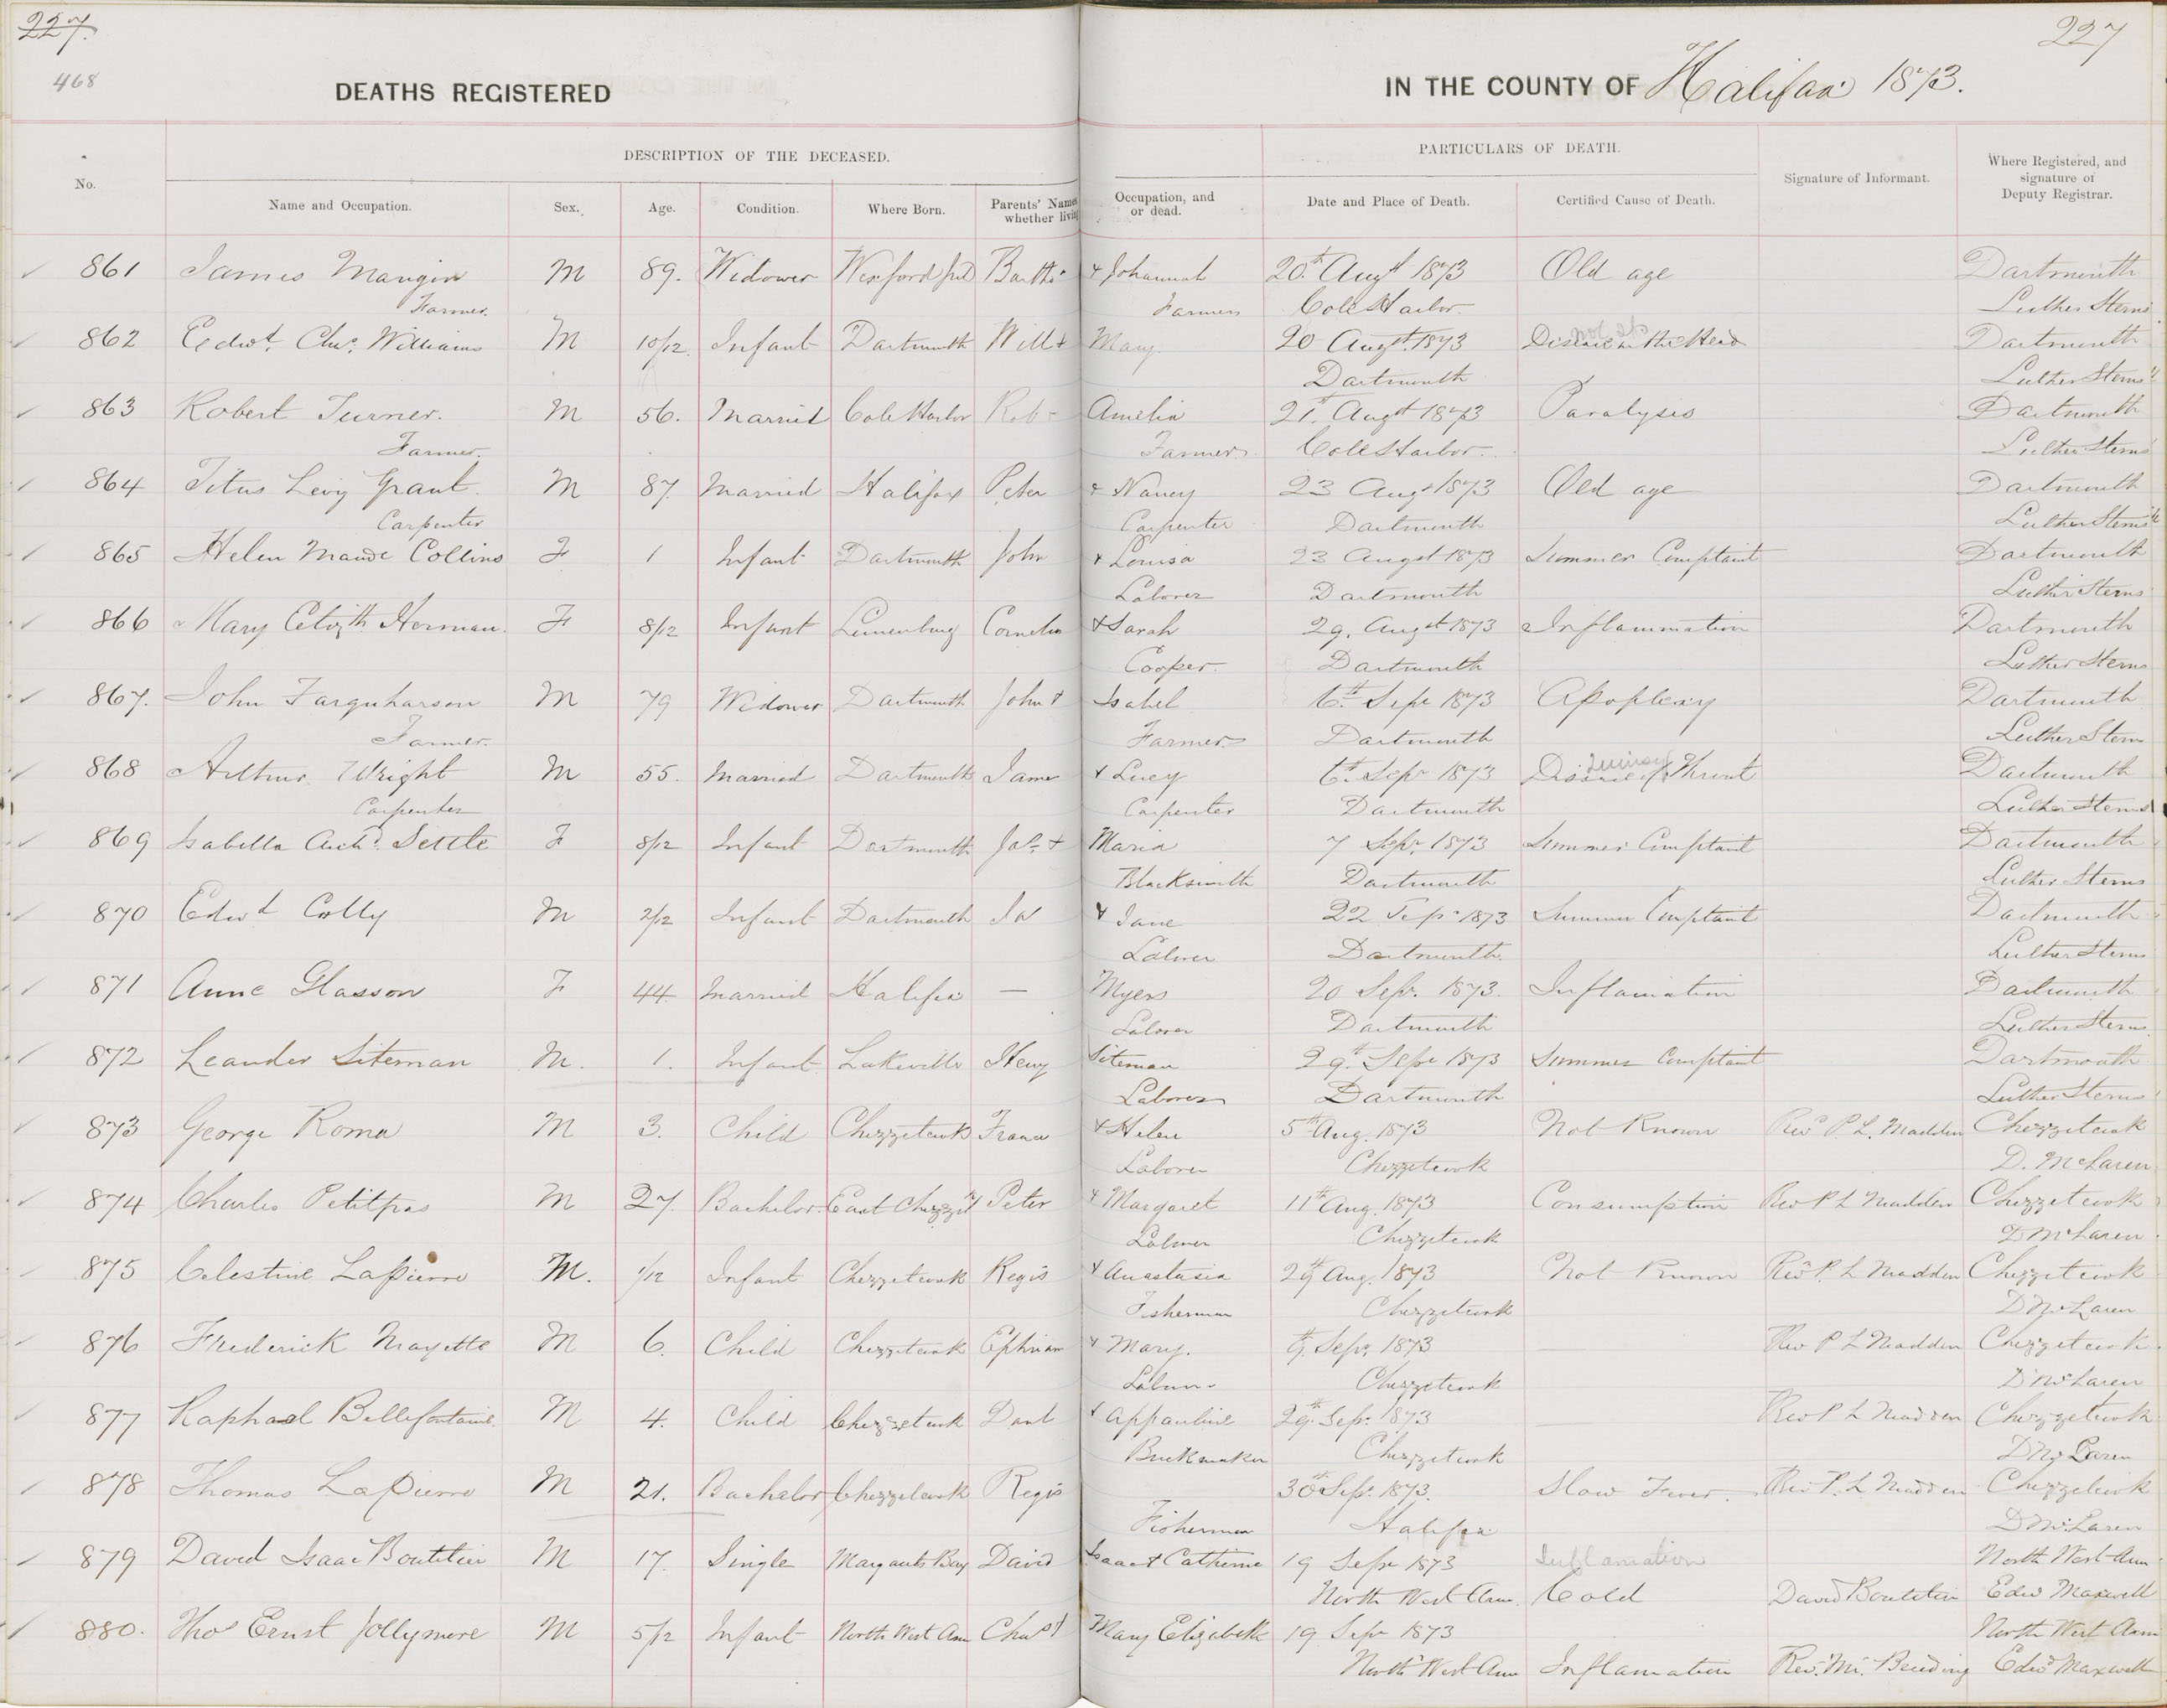 227.
227
468
DEATHS REGISTERED
IN THE COUNTY OF Halifax 1873.
No.
DESCRIPTION OF THE DECEASED.
PARTICULARS OF DEATH.
Signature of Informant.
Where Registered, and signature of Deputy Registrar.
Name and Occupation. Sex. Age. Condition. Where Born. Parents' Names whether living
Occupation, and or dead. Date and Place of Death. Certified Cause of Death.
861 James Mangin M 89. Widower Wexford Ird Bartho & Johannah 20th Augt 1873 Old age Dartmouth
Farmer. Farmer Cole Harbor. Luther Sterns
862 Edwd. Chas. Williams M 10/12 Infant Dartmouth Will & Mary. 20 Augt. 1873 Disease in the Head Dartmouth
Dartmouth Luther Sterns
863 Robert Turner. M 56. Married Cole Harbor Rob- Amelia 21st Augt 1873 Paralysis Dartmouth
Farmer. Farmer Cole Harbor. Luther Sterns
864 Titus Levy Grant. M 87. Married Halifax Peter & Nancy 23 Augt 1873 Old age Dartmouth
Carpenter Carpenter Dartmouth Luther Sterns
865 Helen Maude Collins F 1 Infant Dartmouth John & Louisa 23 Augst 1873 Summer Complaint Dartmouth
Laborer Dartmouth Luther Sterns
866 Mary Elizth Herman. F 8/12 Infant Lunenburg Cornelius & Sarah 29. Augst 1873 Inflammation Dartmouth
Cooper. Dartmouth Luther Sterns
867. John Farquharson M 79 Widower Dartmouth John & Isabel 6th Sepr 1873 Apoplexy Dartmouth
Farmer. Farmer. Dartmouth Luther Sterns
868 Arthur Wright M 55. Married Dartmouth James & Lucy 6th Sepr 1873 Disease of Throat Quinsy Dartmouth
Carpenter Carpenter Dartmouth Luther Sterns
869 Isabella Archd. Settle F 8/12 Infant Dartmouth Jas. & Maria 7 Sepr. 1873 Summer Complaint Dartmouth
Blacksmith Dartmouth Luther Sterns
870 Edwd Colly M 2/12 Infant Dartmouth Jas & Jane 22 Sepr 1873 Summer Complaint Dartmouth
Laborer Dartmouth. Luther Sterns
871 Anne Glasson F 44 Married Halifax — Myers 20 Sepr. 1873. Inflamation Dartmouth
Laborer Dartmouth Luther Sterns
872 Leander Siteman M. 1. Infant Lakeville Henry Siteman 29th Sepr 1873 Summer Complaint Dartmouth
Laborer Dartmouth Luther Sterns
873 George Roma M 3. Child Chezzetcook Francis & Helen 5th Aug. 1873 Not Known Revd P. L. Madden Chezzetcook
Laborer Chezzetcook D. McLaren
874 Charles Petitpas M 27. Bachelor. East Chezzet Peter & Margaret 11th Aug. 1873 Consumption Rev P L Madden Chezzetcook
Laborer Chezzetcook D McLaren
875 Celestine LaPierre M. 1/12 Infant Chezzetcook Regis & Anastasia 29th Aug. 1873 Not Known Revd P. L Madden Chezzetcook
Fisherman Chezzetcook D McLaren
876 Frederick Mayette M 6. Child Chezzetcook Ephriam & Mary. 9th Sepr. 1873 Rev P L Madden Chezzetcook
Laborer Chezzetcook D McLaren
877 Raphael Bellefontaine. M 4. Child Chezzetcook Danl & Appauline 29th Sepr. 1873 Rev P L Madden Chezzetcook
Brickmaker Chezzetcook D McLaren
878 Thomas LaPierre M 21. Bachelor Chezzetcook Regis 30th Sepr. 1873. Slow Fever. Rev P. L. Madden Chezzetcook
Fisherman Halifax D McLaren
879 David Isaac Boutilier M 17. Single Margarets Bay David Isaac & Catherine 19 Sepr 1873 Inflamation North West Arm
North West Arm. Cold David Boutilier Edwd Maxwell
880. Thos Ernst Jollymore M 5/12 Infant North West Arm Chas & Mary Elizabeth 19 Sepr 1873 North West Arm
North West Arm Inflamation Rev. Mr. Breading Edwd Maxwell